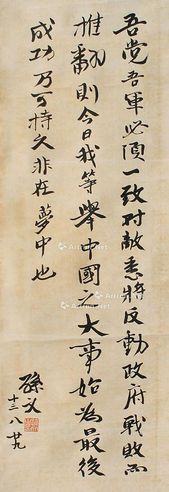 吾党吾軍必須一致对敵悉將反動政府戰敗而
推翻則今日我等舉中國之大事始為最後
成功乃可持久非在夢中也
孫文
十三八廿九